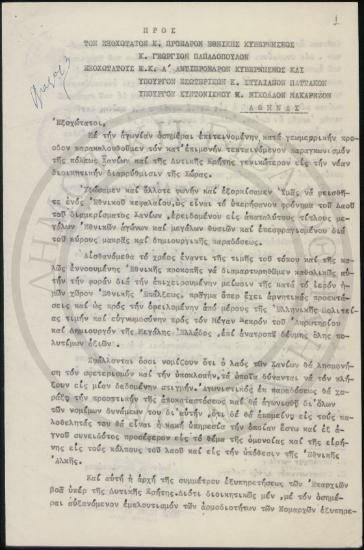 1
Π Ρ Ο Σ
ΤΟΝ ΕΞΟΧΩΤΑΤΟΝ Κ. ΠΡΟΕΔΡΟΝ ΕΘΝΙΚΗΣ ΚΥΒΕΡΝΗΣΕΩΣ
Κ. ΓΕΩΡΓΙΟΝ ΠΑΠΑΔΟΠΟΥΛΟΝ
ΕΞΟΧΩΤΑΤΟΥΣ Κ.Κ. Α΄ ΑΝΤΙΠΡΟΕΔΡΟΝ ΚΥΒΕΡΝΗΣΕΩΣ ΚΑΙ
ΥΠΟΥΡΓΟΝ ΕΣΩΤΕΡΙΚΩΝ Κ. ΣΤΥΛΙΑΝΟΝ ΠΑΤΤΑΚΟΝ
ΥΠΟΥΡΓΟΝ ΣΥΝΤΟΝΙΣΜΟΥ Κ. ΝΙΚΟΛΑΟΝ ΜΑΚΑΡΕΖΟΝ
Α Θ Η Ν Α Σ
Ἐξοχώτατοι,
Μέ τήν ἀγωνίαν ὁσημέραι ἐπιτεινομένην, κατά γεωμετρικήν πρό-
οδον παρακολουθοῦμεν τόν κατ' ἐπιμονήν τεταινόμενον παραγκωνισμόν
τῆς πόλεως Χανίων καί τῆς Δυτικῆς Κρήτης γενικώτερον εἰς τήν νέαν
διοικητικήν διαρρύθμισιν τῆς Χώρας.
Ὑψώσαμεν καί ἄλλοτε φωνήν καί ἐξορκίσαμεν Ὑμᾶς νά φεισθῆτε
ἑνός Ἐθνικοῦ κεφαλαίου, ὡς εἶναι τό ὑπερήφανον φρόνημα τοῦ Λαοῦ
τοῦ διαμερίσματος Χανίων, ἐρειδομένου εἰς ἀπαταλύτους τίτλους μεγά-
λων Ἐθνικῶν ἀγώνων καί μεγάλων θυσιῶν καί ἐπεσφραγισμένου διά
τοῦ κύρους μακρᾶς καί δημιουργικῆς παραδόσεως.
Αἰσθανόμεθα τό χρέος ἔναντι τῆς τιμῆς τοῦ τόπου καί τῆς κα-
λῶς ἐννοουμένης Ἐθνικῆς προκοπῆς νά διαμαρτυρηθῶμεν καθολικῶς αὐ-
τήν τήν φοράν διά τήν ἐπιχειρουμένην μείωσιν τῆς κατά τό ἱερόν ἡ-
μῶν χῶρον Ἐθνικῆς Ἐπάλξεως, πρᾶγμα ὅπερ ἔχει ἀρνητικάς προεκτά-
σεις καί ὡς πρός τήν ὀφειλομένην ἀπό μέρους τῆς Ἑλληνικῆς Πολιτείας
τιμήν καί εὐγνωμοσύνην πρός τόν Μέγαν Νεκρόν τοῦ Ἀκρωτηρίου
καί Δημιουργόν τῆς Μεγάλης Ἑλλάδος, ἐπί ἀνατροπῇ δέσμης ὅλης πο-
λυτίμων ἀξιῶν.
Σφάλλονται ὅσοι νομίζουν ὅτι ὁ λαός τῶν Χανίων θά λησμονήσῃ
τόν σφετερισμόν καί τήν ὑποκλοπήν, τά ὁποῖα δύνανται νά τόν πλή-
ξουν εἰς μίαν δεδομένην στιγμήν. Ἀγωνιστικός ἐκ παραδόσεως θά χα-
ράξῃ τήν προοπτικήν τῆς ἀποκαταστάσεως καί θά ἀγωνισθῇ δι' ὅλων
τῶν νομίμων δυνάμεών του δι' αὐτήν, ὅτι δέ θά ἀπομείνῃ εἰς τούς κα-
λοθελητάς του θά εἶναι ἡ κακή ὑπηρεσία τήν ὁποίαν ἔστω καί ἐξ ἁ-
γνοῦ συνειδότος προσέφερον εἰς τό θέμα τῆς ὁμονοίας καί τῆς εἰρή-
νης εἰς τούς κόλπους τοῦ λαοῦ καί εἰς τήν ὑπόθεσιν τῆς Ἐθνικῆς
Ἀλκῆς.
Καί αὐτή ἡ ἀρχή τῆς συμμέτρου ἐξυπηρετήσεως τῶν Ἐπαρχιῶν
βοᾷ ὑπέρ τῆς Δυτικῆς Κρήτης. Διότι διοικητικῶς μέν, μέ τόν ὁσημέ-
ραι αὐξανόμενον ἐμπλουτισμόν τῶν ἁρμοδιοτήτων τῶν Νομαρχῶν ἐξυπηρε-